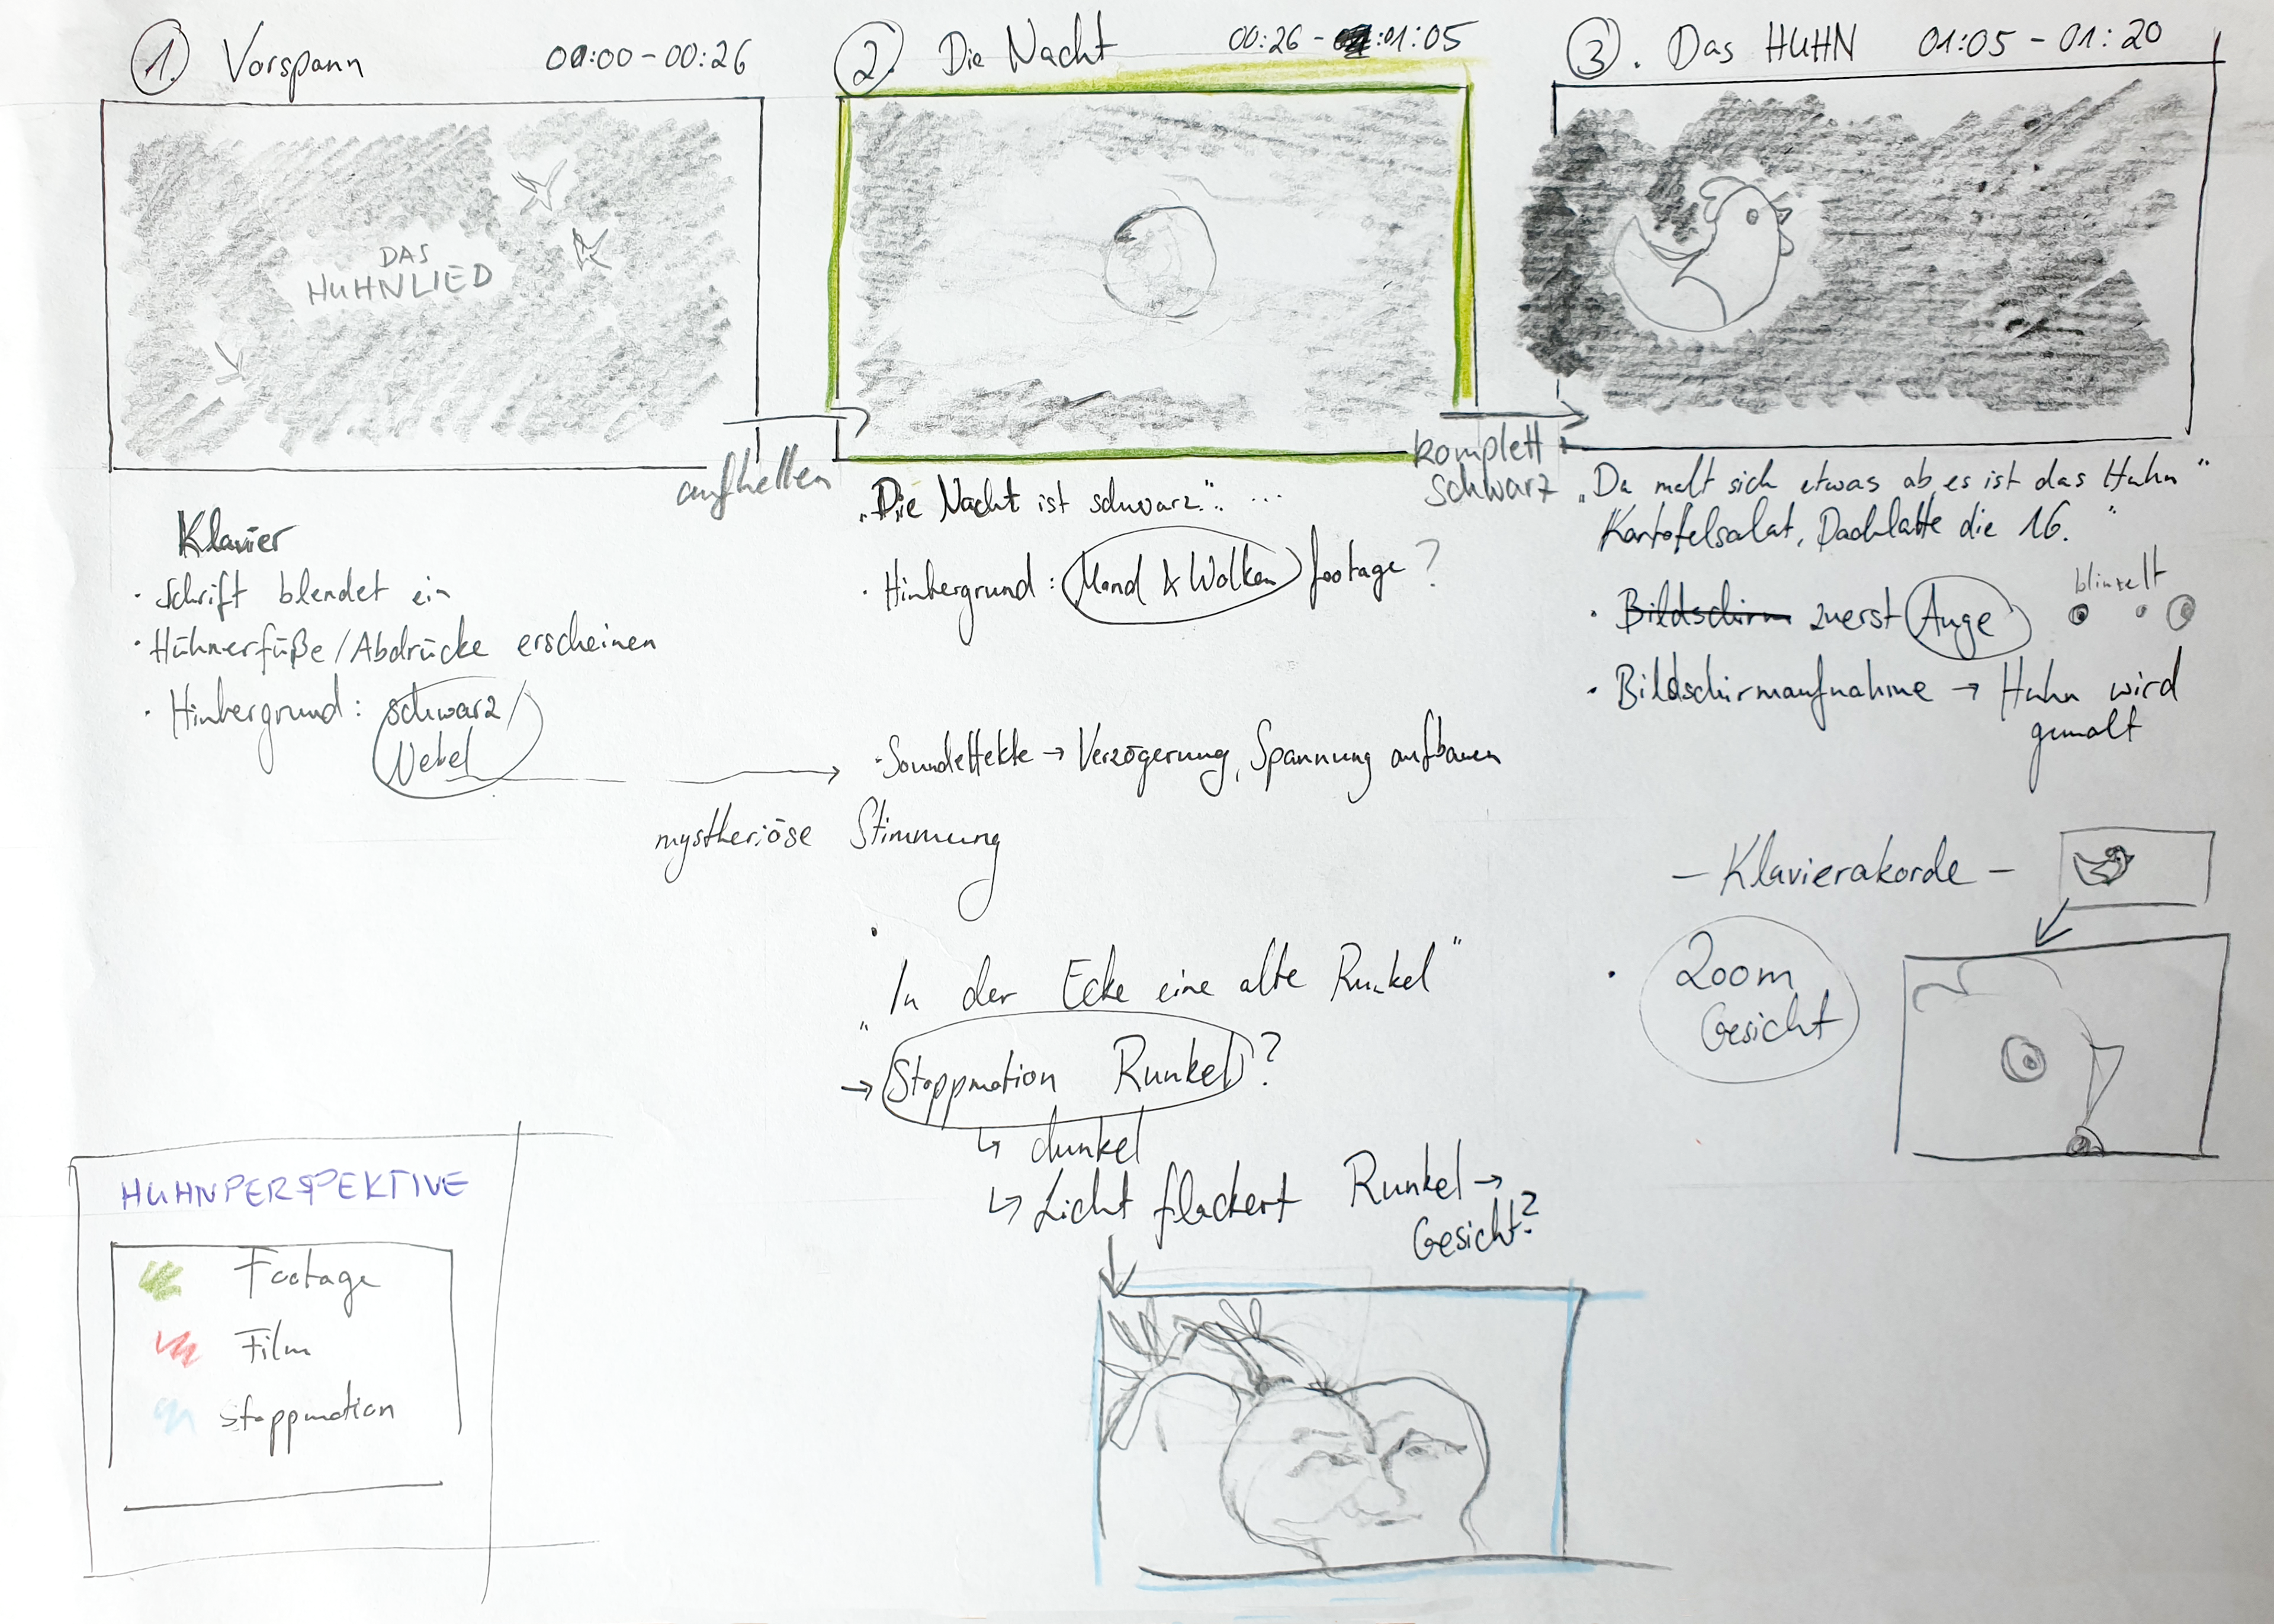 1. Vorspann 00:00 - 00:26
DAS
HUHNLIED
aufhellen
Klavier
· Schrift blendet ein
· Hühnerfüße/Abdrücke erscheinen
· Hintergrund: schwarz/
Nebel
mystheriöse Stimmung
2. Die Nacht 00:26 - :01:05
komplett
schwarz
„Die Nacht ist schwarz." ...
· Hintergrund: Mond & Wolken footage?
· Soundeffekte → Verzögerung, Spannung aufbauen
„In der Ecke eine alte Runkel"
→ Stoppmotion Runkel?
↳ dunkel
↳ Licht flackert Runkel →
Gesicht?
3. Das HUHN 01:05 - 01:20
„Da malt sich etwas ab, es ist das Huhn"
Kartofelsalat, Dachlatte die 16."
blinzelt
· Bildschirm zuerst Auge
· Bildschirmaufnahme → Huhn wird
gemalt
- Klavierakorde -
· Zoom
Gesicht
HUHNPERSPEKTIVE
Footage
Film
Stoppmotion